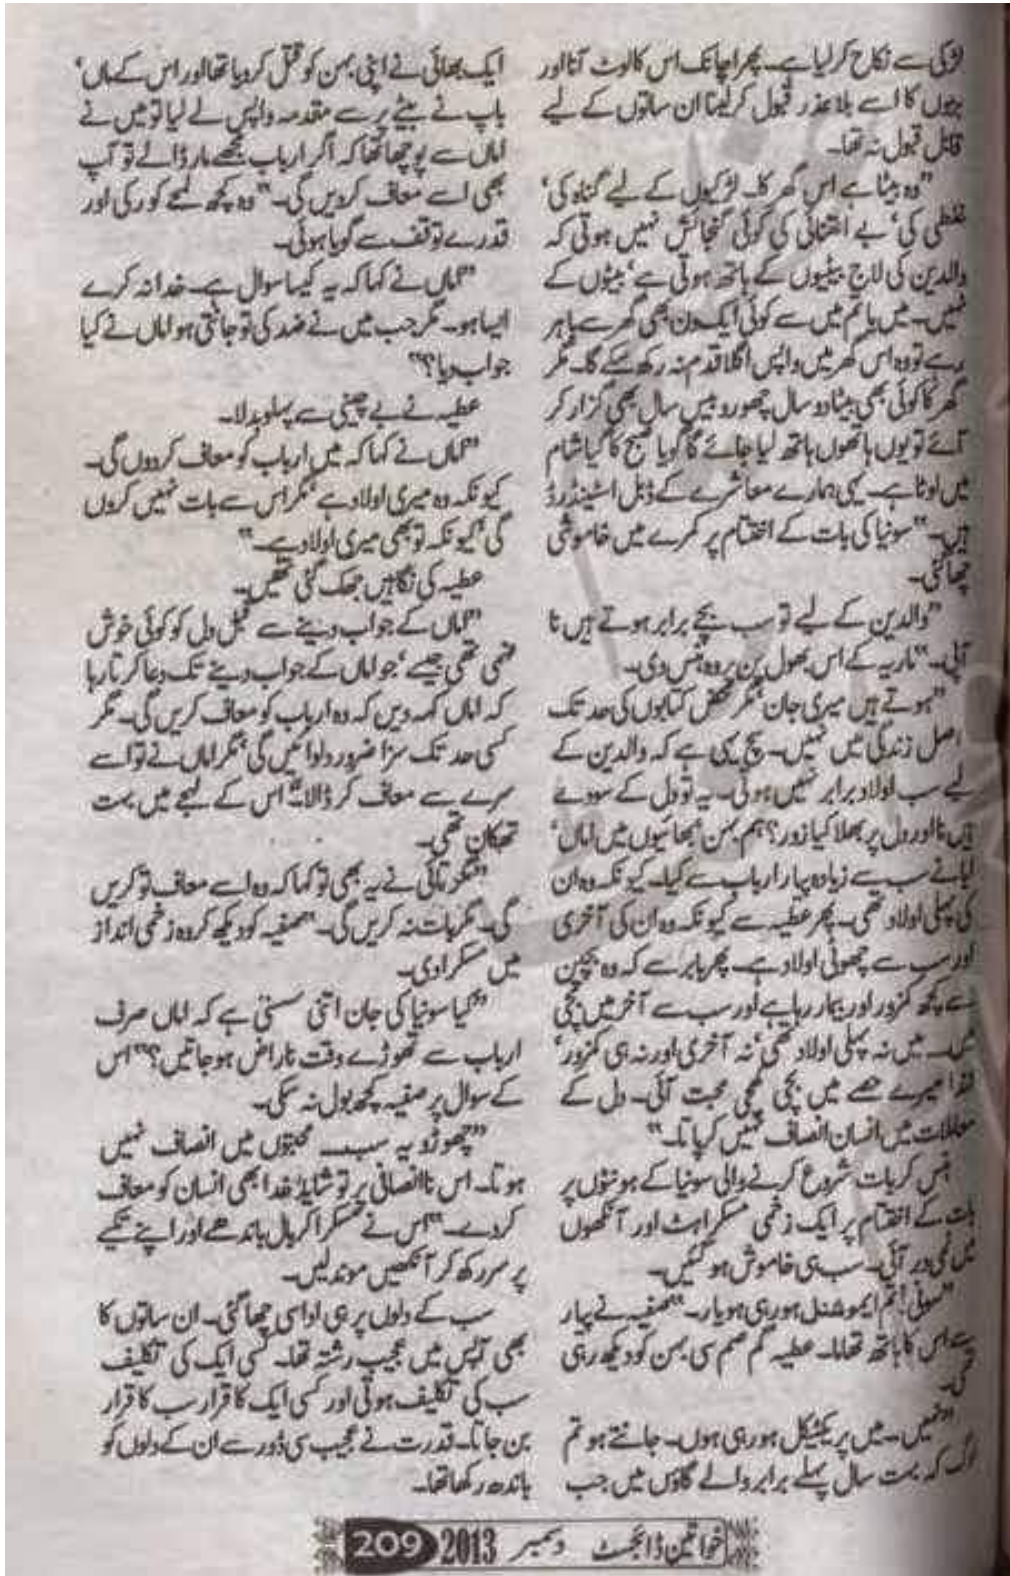 لڑکی سے نکاح کرلیا ہے۔ پھر اچانک اس کا لوٹ آنا اور
بڑوں کا اسے بلاعذر قبول کرلینا ان ساتوں کے لیے
قابل قبول نہ تھا۔
"وہ بیٹا ہے اس گھر کا۔ لڑکیوں کے لیے گناہ کی،
غلطی کی، بے اعتنائی کی کوئی گنجائش نہیں ہوتی کہ
والدین کی لاج بیٹیوں کے ہاتھ ہوتی ہے، بیٹوں کے
نہیں۔ میں یا تم میں سے کوئی ایک دن بھی گھر سے باہر
رہے تو وہ اس گھر میں واپس اگلا قدم نہ رکھ سکے گا۔ مگر
گھر کا کوئی بھی بیٹا دو سال چھوڑو بیس سال بھی گزار کر
آئے تو یوں ہاتھوں ہاتھ لیا جائے گا گویا صبح کا گیا شام
میں لوٹا ہے۔ یہی ہمارے معاشرے کے ڈبل اسٹینڈرڈ
ہیں۔" سونیا کی بات کے اختتام پر کمرے میں خاموشی
چھا گئی۔
"والدین کے لیے تو سب بچے برابر ہوتے ہیں نا
آپی۔" ماریہ کے اس بھول پن پر وہ ہنس دی۔
"ہوتے ہیں میری جان، مگر محض کتابوں کی حد تک
اصل زندگی میں نہیں۔ سچ یہی ہے کہ والدین کے
لیے سب اولاد برابر نہیں ہوتی۔ یہ تو دل کے سودے
ہیں نا اور دل پر بھلا کیا زور؟ ہم بہن بھائیوں میں اماں،
ابا نے سب سے زیادہ پیار ارباب سے کیا۔ کیونکہ وہ ان
کی پہلی اولاد تھی۔ پھر عطیہ سے کیونکہ وہ ان کی آخری
اور سب سے چھوٹی اولاد ہے۔ پھر بابر سے کہ وہ بچپن
سے کچھ کمزور اور بیمار رہا ہے اور سب سے آخر میں بچی
میں۔ میں نہ پہلی اولاد تھی، نہ آخری اور نہ ہی کمزور،
لہٰذا میرے حصے میں بچی کھچی محبت آئی۔ دل کے
معاملات میں انسان انصاف نہیں کر پاتا۔"
ہنس کر بات شروع کرنے والی سونیا کے ہونٹوں پر
بات کے اختتام پر ایک زخمی مسکراہٹ اور آنکھوں
میں نمی در آئی۔ سب ہی خاموش ہو گئیں۔
"سونی! تم ایموشنل ہو رہی ہو یار۔" صفیہ نے پیار
سے اس کا ہاتھ تھاما۔ عطیہ گم صم سی بہن کو دیکھ رہی
تھی۔
"نہیں۔ میں پریکٹیکل ہو رہی ہوں۔ جانتے ہو تم
لوگ کہ بہت سال پہلے برابر والے گاؤں میں جب
ایک بھائی نے اپنی بہن کو قتل کر دیا تھا اور اس کے ماں،
باپ نے بیٹے پر سے مقدمہ واپس لے لیا تو میں نے
اماں سے پوچھا تھا کہ اگر ارباب مجھے مار ڈالے تو آپ
بھی اسے معاف کردیں گی۔" وہ کچھ لمحے کو رکی اور
قدرے توقف سے گویا ہوئی۔
"اماں نے کہا کہ یہ کیسا سوال ہے۔ خدا نہ کرے
ایسا ہو۔ مگر جب میں نے ضد کی تو جانتی ہو اماں نے کیا
جواب دیا؟"
عطیہ نے بے چینی سے پہلو بدلا۔
"اماں نے کہا کہ میں ارباب کو معاف کردوں گی۔
کیونکہ وہ میری اولاد ہے، مگر اس سے بات نہیں کروں
گی، کیونکہ تو بھی میری اولاد ہے۔"
عطیہ کی نگاہیں جھک گئی تھیں۔
"اماں کے جواب دینے سے قبل دل کو کوئی خوش
فہمی تھی جیسے، جو اماں کے جواب دینے تک دعا کرتا رہا
کہ اماں کہہ دیں کہ وہ ارباب کو معاف کریں گی۔ مگر
کسی حد تک سزا ضرور دلوائیں گی، مگر اماں نے تو اسے
سرے سے معاف کر ڈالا۔" اس کے لہجے میں بہت
تھکان تھی۔
"مگر تائی نے یہ بھی تو کہا کہ وہ اسے معاف تو کریں
گی۔ مگر بات نہ کریں گی۔" صفیہ کو دیکھ کر وہ زخمی انداز
میں مسکرا دی۔
"کیا سونیا کی جان اتنی سستی ہے کہ اماں صرف
ارباب سے تھوڑے وقت ناراض ہو جاتیں؟" اس
کے سوال پر صفیہ کچھ بول نہ سکی۔
"چھوڑو یہ سب۔ محبتوں میں انصاف نہیں
ہوتا۔ اس ناانصافی پر تو شاید خدا بھی انسان کو معاف
کردے۔" اس نے مسکرا کر بال باندھے اور اپنے تکیے
پر سر رکھ کر آنکھیں موند لیں۔
سب کے دلوں پر ہی اداسی چھا گئی۔ ان ساتوں کا
بھی آپس میں عجیب رشتہ تھا۔ کسی ایک کی تکلیف
سب کی تکلیف ہوتی اور کسی ایک کا قرار سب کا قرار
بن جاتا۔ قدرت نے عجیب سی ڈور سے ان کے دلوں کو
باندھ رکھا تھا۔
خواتین ڈائجسٹ دسمبر 2013 209